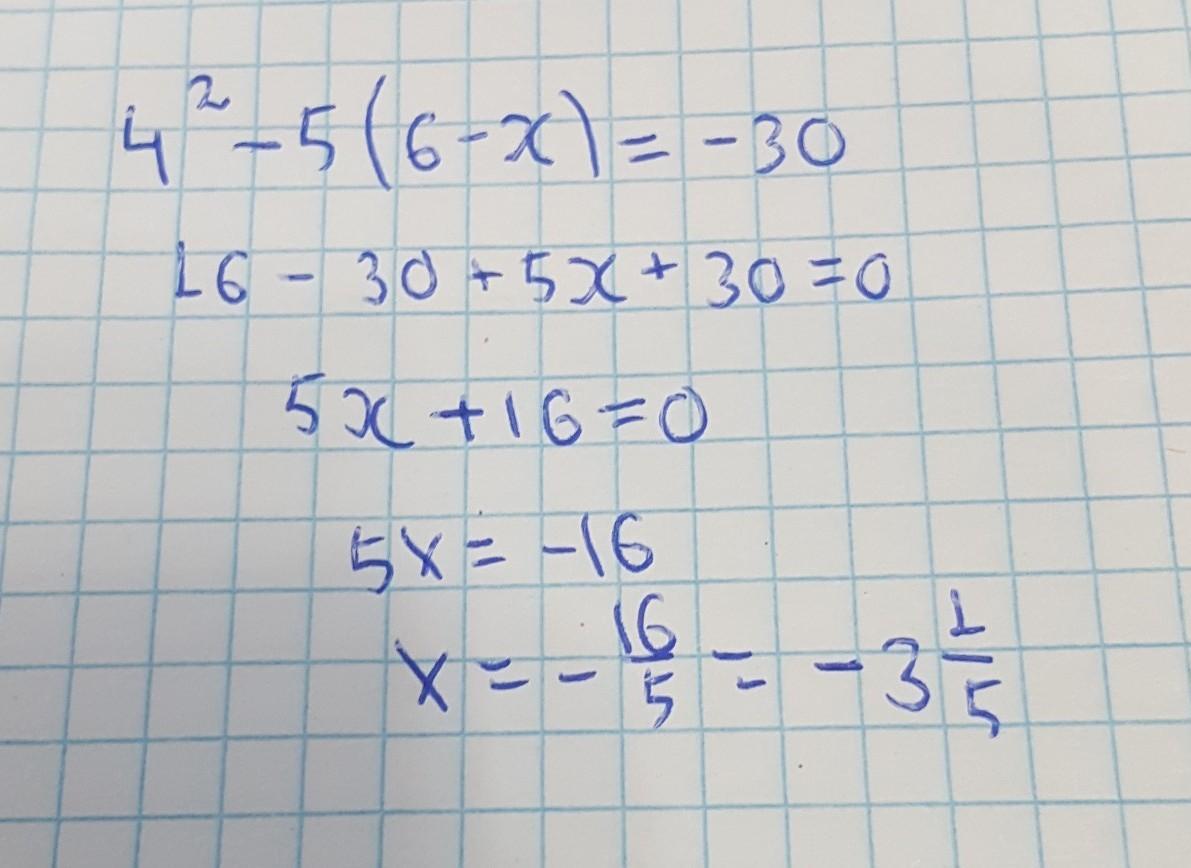 4² - 5(6 - x) = -30
16 - 30 + 5x + 30 = 0
5x + 16 = 0
5x = -16
x = - 16/5 = -3 1/5